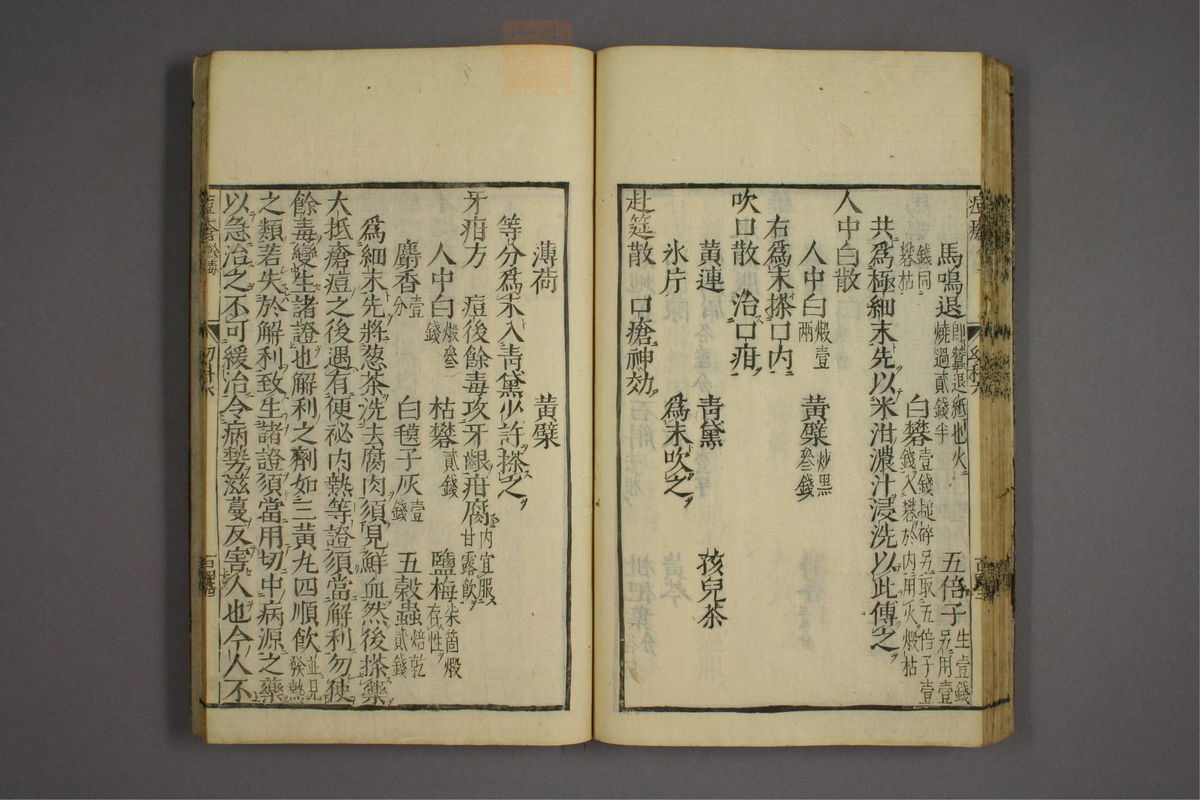 馬鳴退 即蠶退紙也火燒過貳錢半 五倍子 生壹錢另用壹
錢同礬枯 白礬 壹錢搥碎另取五倍子壹錢入礬於內用火煅枯
共爲極細末先以米泔濃汁浸洗以此傅之
人中白散
人中白 煅壹兩 黃蘗 炒黑叄錢
右爲末搽口內
吹口散 治口疳
黃連 青黛 孩兒茶
氷片 爲末吹之
赴筵散 口瘡神効
薄荷 黃蘗
等分爲末入青黛少許搽之
牙疳方 痘後餘毒攻牙齦疳腐 內宜服甘露飲
人中白 煅叄錢 枯礬 貳錢 鹽梅 柒箇煅存性
麝香 壹分 白氊子灰 壹錢 五穀蟲 焙乾貳錢
爲細末先將葱茶洗去腐肉須見鮮血然後搽藥
大抵瘡痘之後遇有便祕內熱等證須當解利勿使
餘毒變生諸證也解利之劑如三黃丸四順飲 並見發熱
之類若失於解利致生諸證須當用切中病源之藥
以急治之不可緩治令病勢滋蔓反害人也今人不